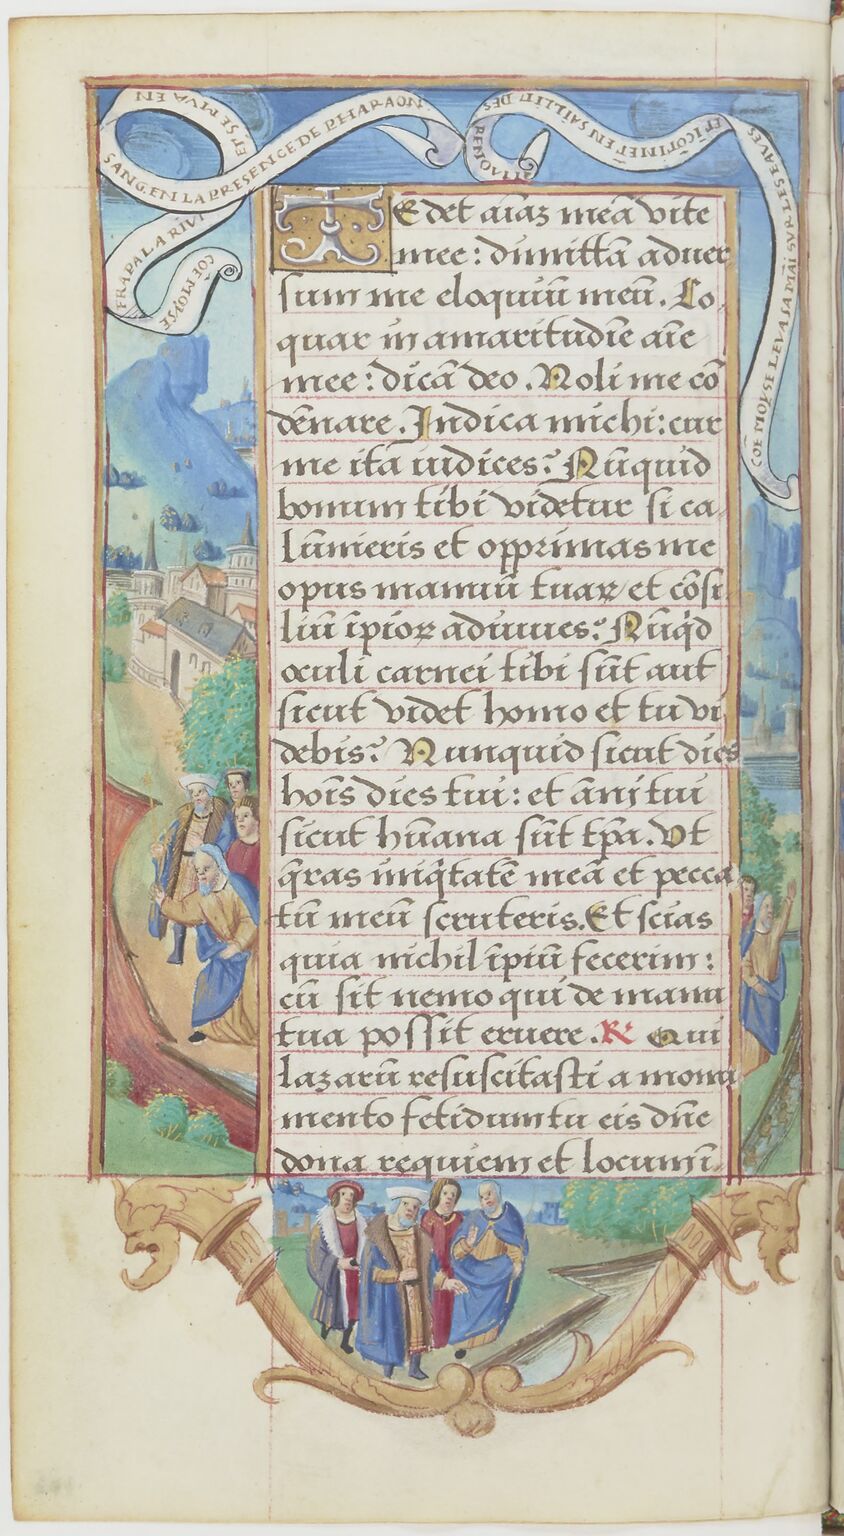 COE MOYSE
FRAPA LA RIVI
ET SE MVA EN
SANG. EN LA PRESENCE DE PHARAON
COE MOYSE LEVA SA MAI SVR LES EAVES
ET ICOTINET EN SAILLIT DES
RENOVILL
Tedet aiaz meā vite
mee: dimittā aduer
sum me eloquiū meū. Lo
quar in amaritudīe aīe
mee: dicā deo. Noli me cō
dēnare. Indica michi: cur
me ita iudices? Nūquid
bonum tibi videtur si ca
lūnieris et opprimas me
opus manuū tuaꝝ et cōsi
liū īpioꝝ adiuues? Nūqd
oculi carnei tibi sūt aut
sicut videt homo et tu vi
debis? Nunquid sicut dies
hoīs dies tui: et ānj tui
sicut hūana sūt tp̄a. Vt
q̄ras iniq̄tatē meā et pecca
tū meū scruteris. Et scias
quia nichil īpiū fecerim:
cū sit nemo qui de manu
tua possit eruere. R. Qui
lazarū resuscitasti a monu
mento fetidum tu eis dn̄e
dona requiem et locum ī.